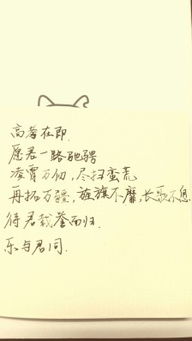 高考在即.
愿君一路驰骋
凌霄万仞,尽扫蛮荒
再拓万疆,旌旗不靡,长歌不息
待君载誉而归.
乐与君同.